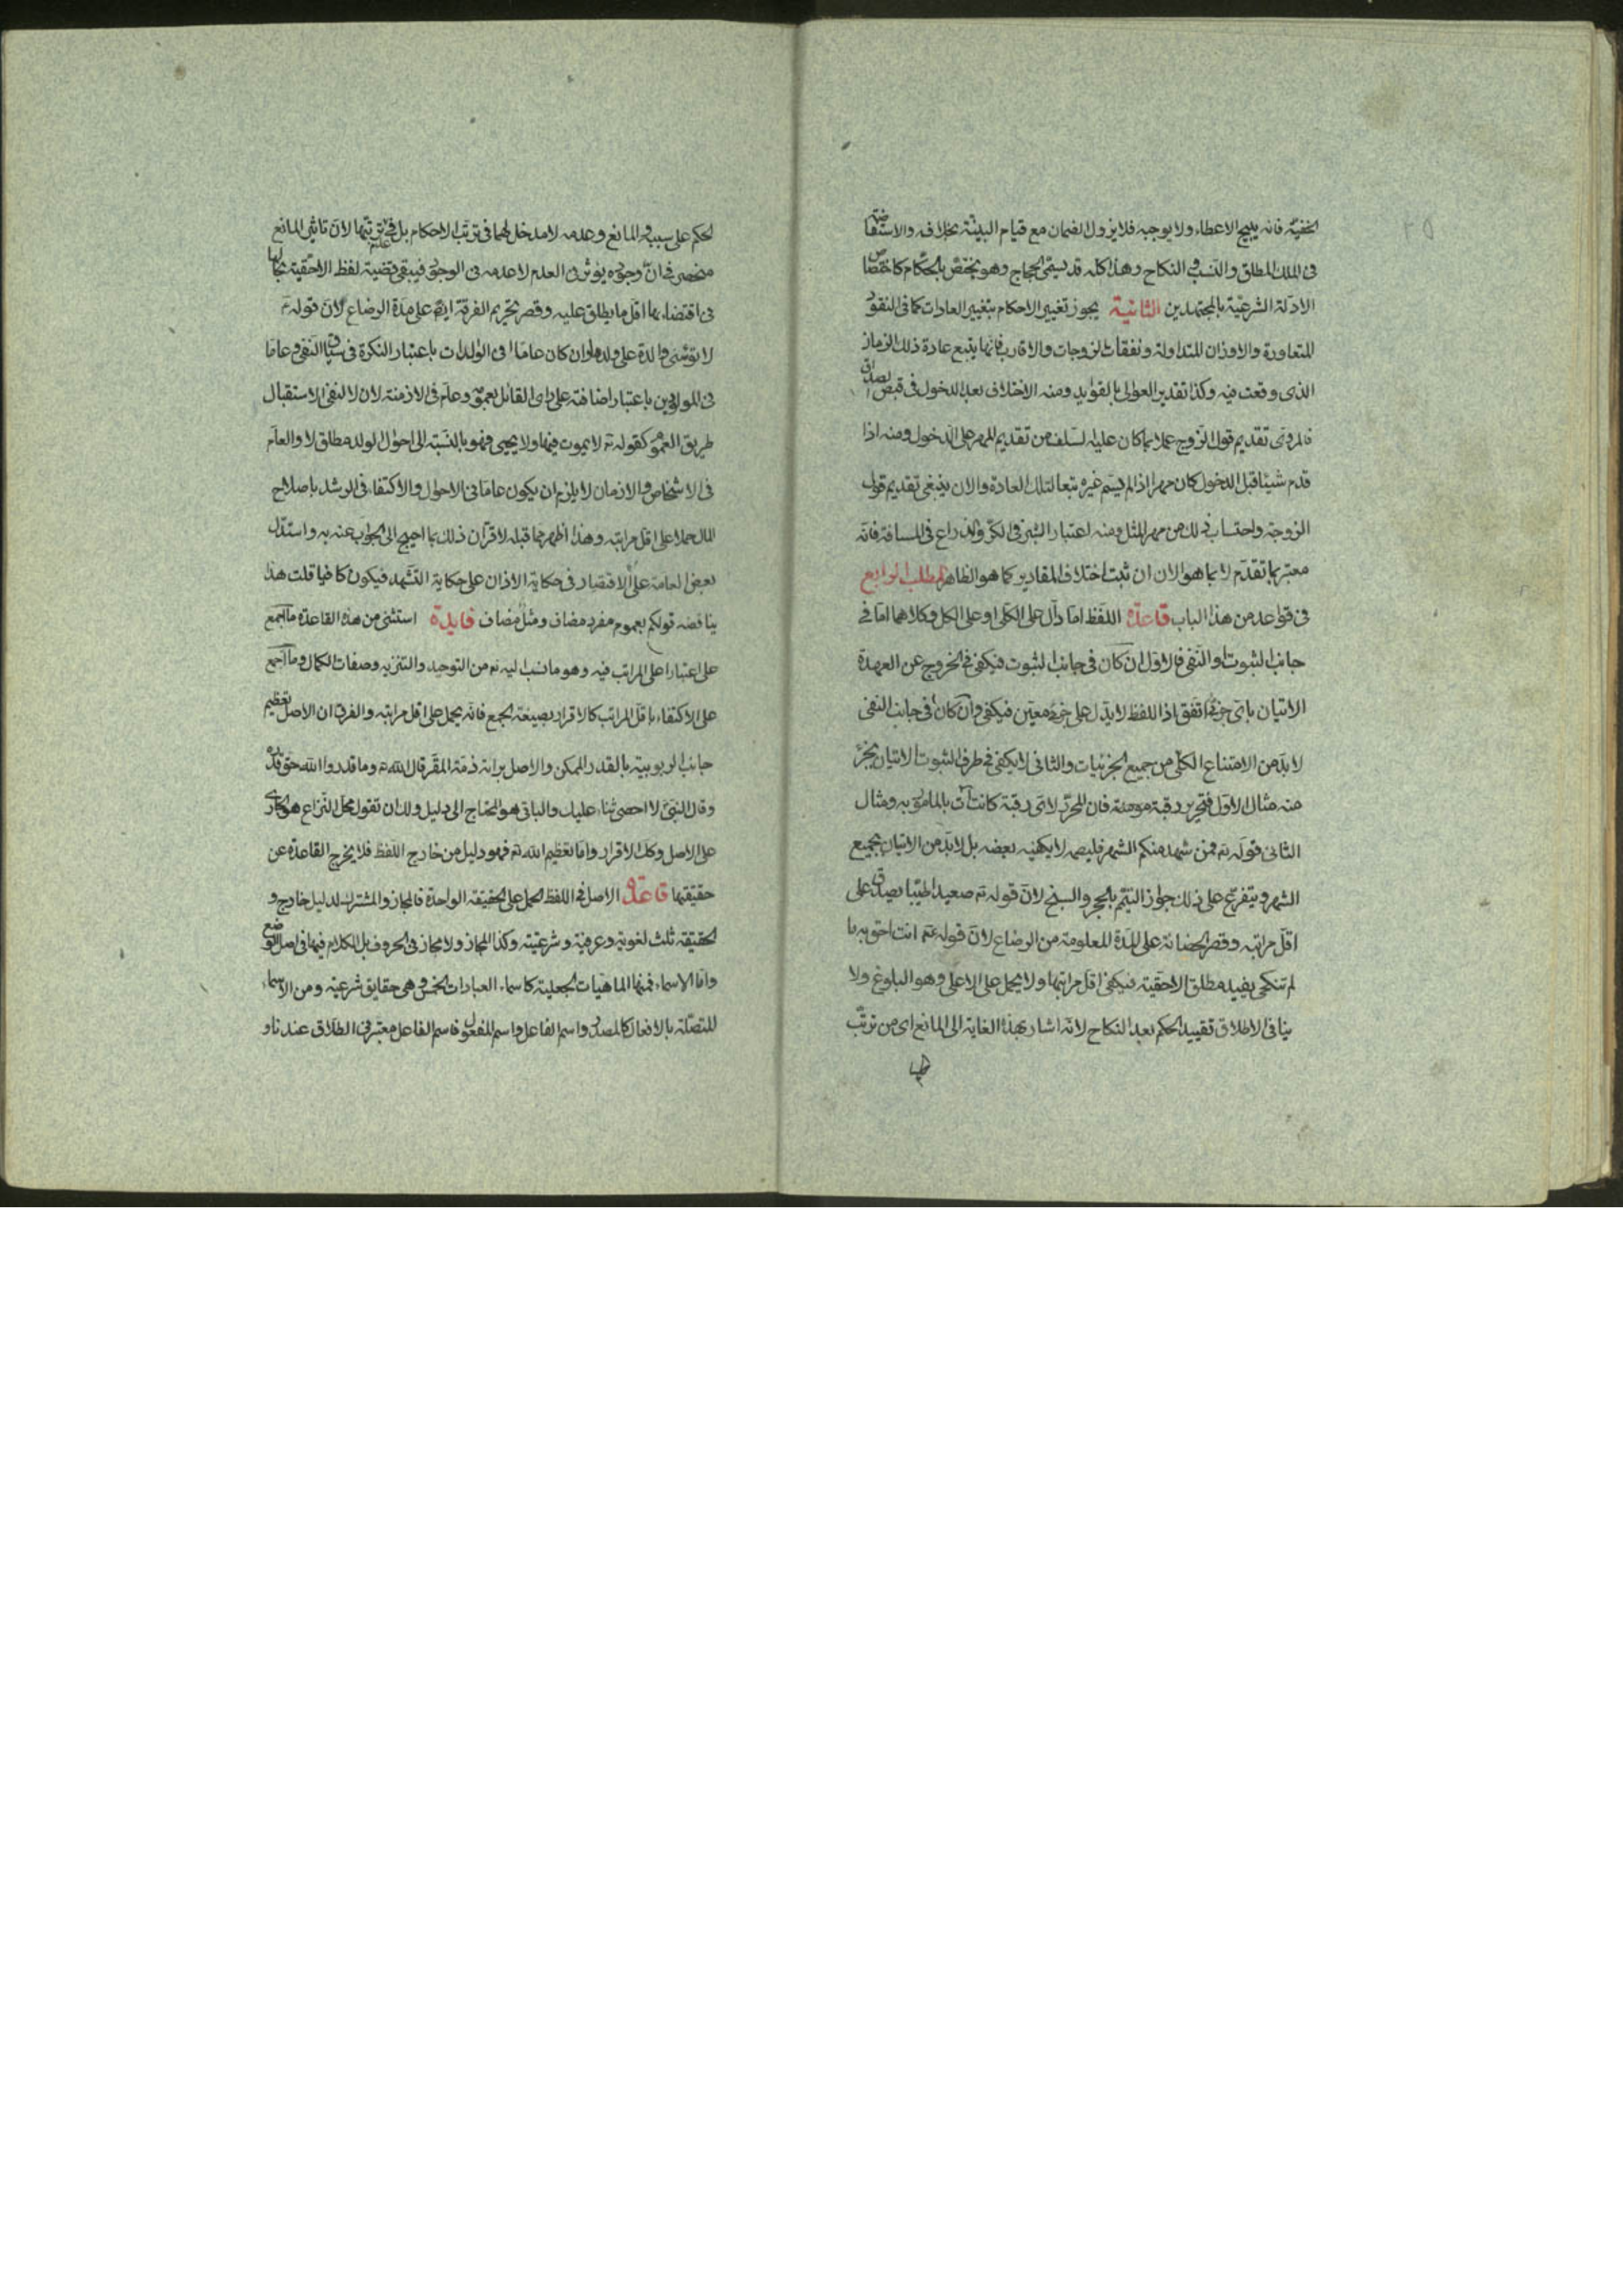 الخفيّة فانه يبيح الاعطاء ولا يوجبه فلا يزول الضمان مع قيام البينة بخلافه والاستفاضة
فى الملك المطلق والنسب فى النكاح وهذا كله قد يسمّى الحجاج وهو يختص بالحكّام كاختصاص
الادلة الشرعيّة بالمجتهدين الثانية يجوز تغيير الاحكام بتغيير العادات كما فى النقود
المتعاورة والاوزان المتداولة ونفقات الزوجات والاقارب فانها يتبع عادة ذلك الزمان
الذى وقعت فيه وكذا تقدير العوارى بالفوايد ومنه الاختلاف بعد الدخول فى قبض الصداق
فالمروى تقديم قول الزوج عملا بما كان عليه السلف من تقديم المهر على الدخول ومنه اذا
قدم شيئا قبل الدخول كان مهرا اذا لم يسم غيره تبعا لتلك العادة والان ينبغى تقديم قول
الزوجة واحتساب ذلك من مهر المثل ومنه اعتبار الشبر فى الكر والذراع فى المسافة فانه
معتبر بما تقدم لا بما هو الان ان ثبت اختلاف المقادير كما هو الظاهر المطلب الرابع
فى قواعد من هذا الباب قاعدة اللفظ اما دال على الكلى او على الكل وكلاهما اما فى
جانب الثبوت او النفى فالاول ان كان فى جانب الثبوت فيكفى فى الخروج عن العهدة
الاتيان باى جزئى اتفق اذ اللفظ لا يدل على جزئى معين فيكفى وان كان فى جانب النفى
لا بد من الامتناع الكلى من جميع الجزئيات والثانى لا يكفى فى طرف الثبوت الاتيان بجزء
منه مثال الاول فتحرير رقبة مومنة فان المحرّر لاى رقبة كانت آت بالمامور به ومثال
الثانى قوله تع فمن شهد منكم الشهر فليصمه لا يكفيه بعضه بل لا بد من الاتيان بجميع
الشهر ويتفرع على ذلك جواز التيمم بالحجر والسبخ لان قوله تع صعيدا طيبا يصدق على
اقل مراتبه وقصر الحضانة على المدة المعلومة من الرضاع لان قوله عم انت احق به ما
لم تنكحى يفيد مطلق الاحقية فيكفى اقل مراتبها ولا يحمل على الاعلى وهو البلوغ ولا
ينافى الاطلاق تقييد الحكم بعد النكاح لانه اشار بهذا الغاية الى المانع اى من ترتّب
الحكم على سببه والمانع وعدمه لا مدخل لهما فى ترتب الاحكام بل فى عدم ترتبها لان تاثير المانع
منحصر فى ان وجوده يؤثر فى العدم لا عدمه فى الوجود فيبقى قضية لفظ الاحقية بحالها
فى اقتضاء بها اقل ما يطلق عليه وقصر تحريم الفرقة ايضا على مدة الرضاع لان قوله ع
لا توله والدة على ولدها وان كان عاما فى الوالدات باعتبار النكرة فى سياق النفى وعاما
فى المولودين باعتبار اضافته على راى القائل بعمومه وعام فى الازمنة لان لا لنفى الاستقبال
طريق العموم كقوله تع لا يموت فيها ولا يحيى فهو بالنسبة الى احوال الولد مطلق لا والعام
فى الاشخاص والازمان لا يلزم ان يكون عاما فى الاحوال والاكتفاء فى الرشد باصلاح
المال حملا على اقل مراتبه وهذا اظهر مما قبله لاقتران ذلك بما احيج الى الجواب عنه به واستدل
بعض العامة على الاقتصار فى حكاية الاذان على حكاية التشهد فيكون كافيا قلت هذا
يناقضه قولكم بعموم مفرد مضاف ومثل مضاف فايدة استثنى من هذه القاعدة ما اجمع
على اعتبار اعلى المراتب فيه وهو ما نسب اليه تع من التوحيد والتنزيه وصفات الكمال وما اجمع
على الاكتفاء باقل المراتب كالاقرار بصيغة الجمع فانه يحمل على اقل مراتبه والفرق ان الاصل تعظيم
جانب الربوبية بالقدر الممكن والاصل براءة ذمة المقر قال الله تع وما قدروا الله حق قدره
وقال النبى لا احصى ثناء عليك والباقى هو المحتاج الى دليل ولك ان تقول محل النزاع هو الجارى
على الاصل وكك الاقرار واما تعظيم الله تع فهو دليل من خارج اللفظ فلا يخرج القاعدة عن
حقيقتها قاعدة الاصل فى اللفظ الحمل على الحقيقة الواحدة فالمجاز والمشترك لدليل خارج و
الحقيقة ثلث لغوية وعرفية وشرعيّة وكذا المجاز ولا مجاز فى الحروف بل الكلام فيها فى اصل الوضع
واما الاسماء فمنها الماهيات الجعلية كاسماء العبادات الخمس وهى حقايق شرعية ومن الاسماء
المتصلة بالافعال كالمصدر واسم الفاعل واسم المفعول فاسم الفاعل معتبر فى الطلاق عندنا و